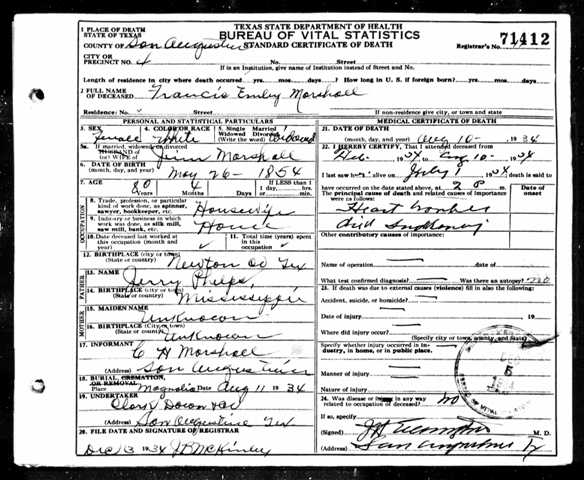 TEXAS STATE DEPARTMENT OF HEALTH
BUREAU OF VITAL STATISTICS
STANDARD CERTIFICATE OF DEATH
71412
1 PLACE OF DEATH
STATE OF TEXAS
COUNTY OF San Augustine
CITY OR
PRECINCT NO. 4 No. Street
Registrar's No.
If in an Institution, give name of Institution instead of Street and No.
Length of residence in city where death occurred yrs. mos. days. ? How long in U. S. if foreign born? yrs. mos. days
2 FULL NAME
OF DECEASED Francis Emley Marshall
Residence: No. Street
If non-residence give city, or town and state
PERSONAL AND STATISTICAL PARTICULARS
3. SEX Female
4. COLOR OR RACE White
5. Single Married
Widowed Divorced
(Write the word) Widowed
5a. If married, widowed or divorced
HUSBAND OF
(or) WIFE OF Jim Marshall
6. DATE OF BIRTH
(month, day, and year) May 26 - 1854
7. AGE Years 80 Months Days If less than 1
day, hrs.
min.
OCCUPATION
8. Trade, profession, or particular
kind of work done, as spinner,
sawyer, bookkeeper, etc. Housewife
9. Industry or business in which
work was done, as silk mill,
saw mill, bank, etc. Home
10. Date deceased last worked at
this occupation (month and
year)
11. Total time (years) spent
in this
occupation
12. BIRTHPLACE (city or town)
(State or country) Newton Co Tex
FATHER
13. NAME Jerry Phelps
14. BIRTHPLACE (city or town)
(State or country) Mississippi
MOTHER
15. MAIDEN NAME Unknown
16. BIRTHPLACE (City or town)
(State or country) Unknown
17. INFORMANT C H Marshall
(Address) San Augustine
18. BURIAL, CREMATION,
OR REMOVAL
Place Magnolia Date Aug 11 1934
19. UNDERTAKER
(Address) San Augustine Tex
20. FILE DATE AND SIGNATURE OF REGISTRAR
1934 McKinley
MEDICAL CERTIFICATE OF DEATH
21. DATE OF DEATH
(month, day, and year) Aug 10 - 1934
22. I HEREBY CERTIFY, That I attended deceased from
Feb. 1934 to Aug 10 - 1934
I last saw h alive on July 1 1934 death is said to
have occurred on the date stated above, at 2 P m.
The principal cause of death and related causes of importance
were as follows:
Date of
onset
Heart
Other contributory causes of importance:
Name of operation Date of
What test confirmed diagnosis? Was there an autopsy? no
23. If death was due to external causes (violence) fill in also the following:
Accident, suicide, or homicide?
Date of injury 19
Where did injury occur?
(Specify city or town, county, and State)
Specify whether injury occurred in in-
dustry, in home, or in public place.
Manner of injury
Nature of injury
24. Was disease or injury in any way
related to occupation of deceased? No
If so, specify
(Signed) M. D.
(Address) San Augustine Tx